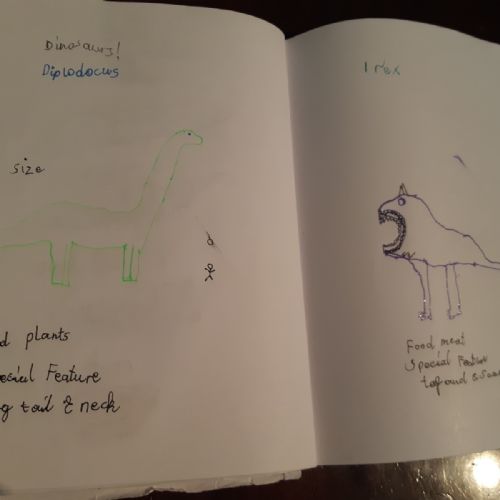 Dinosaurs!
Diplodocus
size
d plants
ecial Feature
g tail & neck
T rex
Food meat
Special Feature